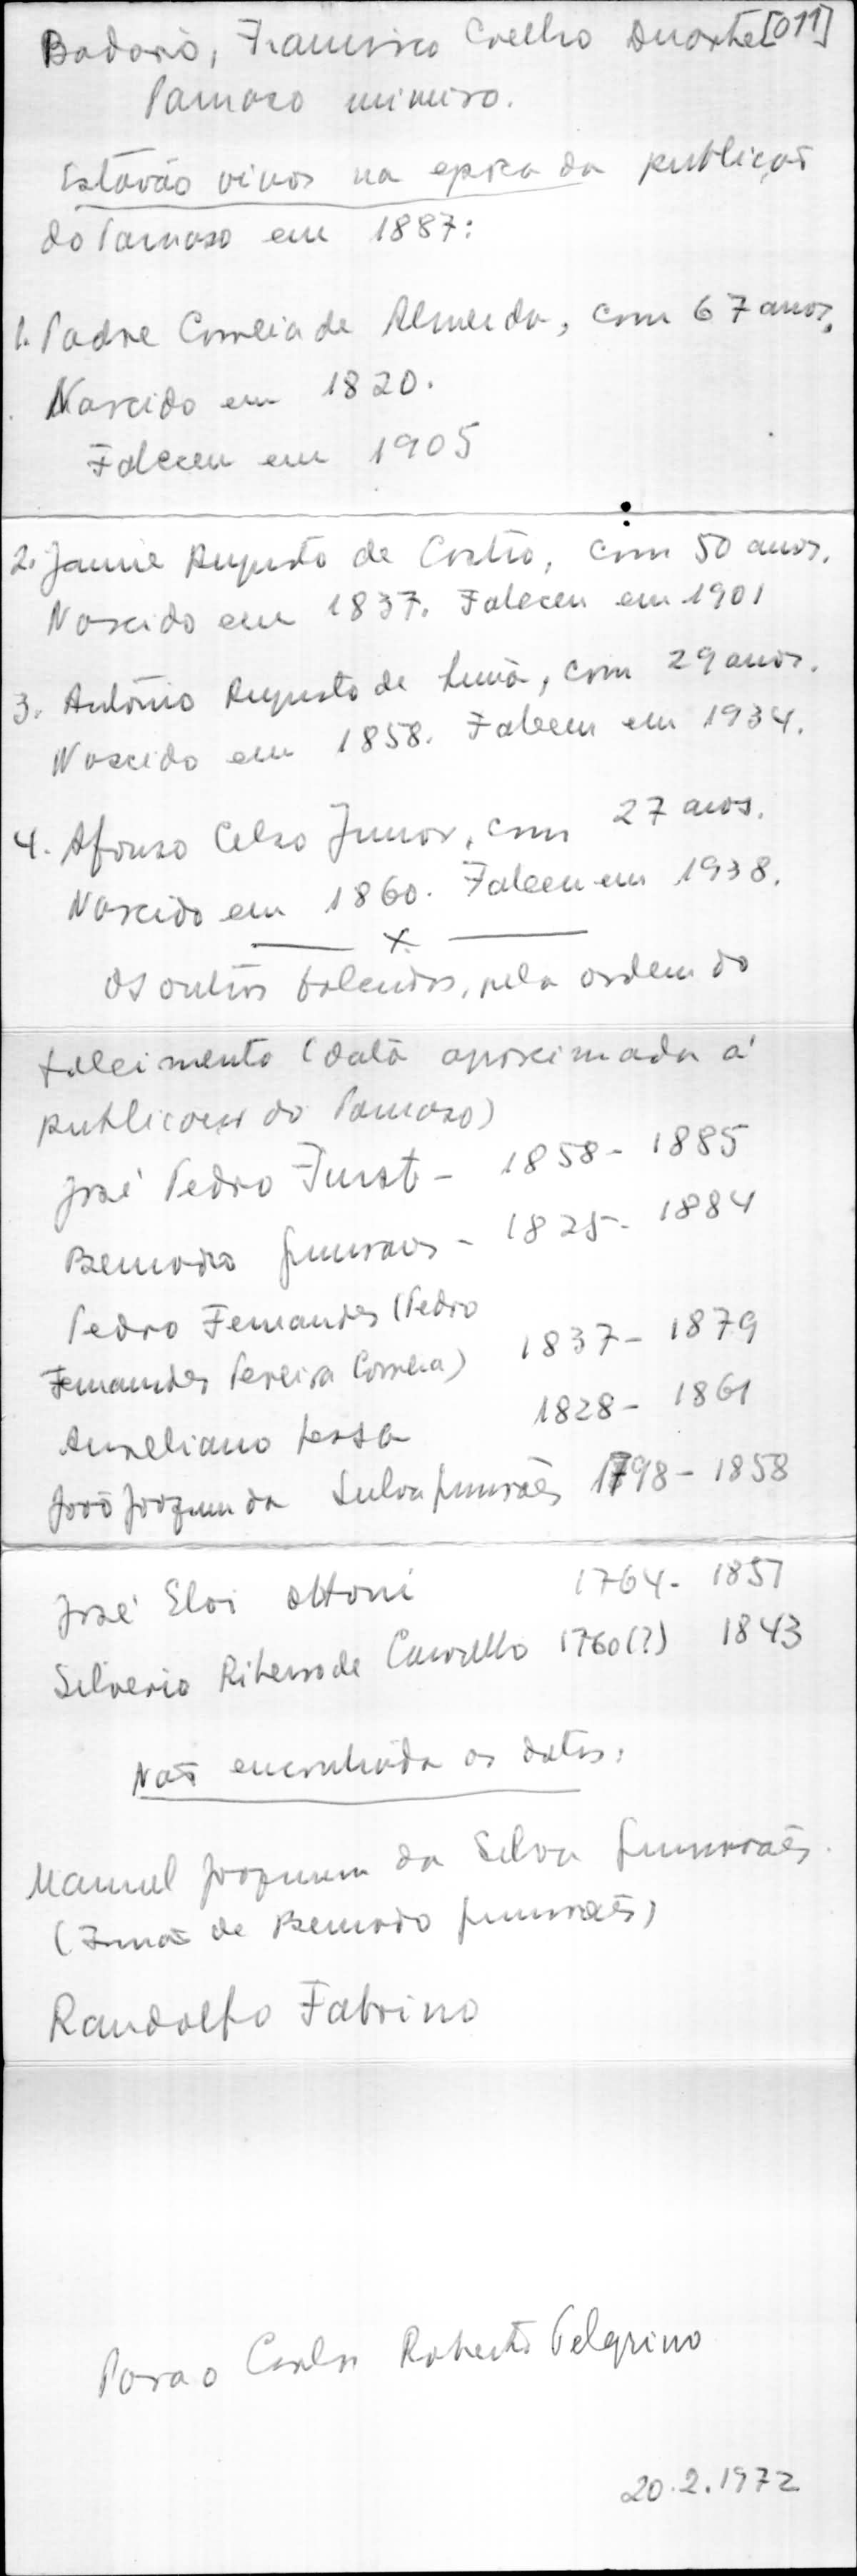 Badaró, Francisco Coelho Duarte [011]
Parnaso mineiro.
Estavão vivos na epoca da publicção
do Parnaso em 1887:
1. Padre Correia de Almeida, com 67 anos.
Nascido em 1820.
Faleceu em 1905
2. Jaime Augusto de Castro, com 50 anos.
Nascido em 1837. Faleceu em 1901
3. Antônio Augusto de Lima, com 29 anos.
Nascido em 1858. Faleceu em 1934.
4. Afonso Celso Junior, com 27 anos.
Nascido em 1860. Faleceu em 1938.
x
Os outros falecidos, pela ordem do
falecimento (data aproximada á
publicação do Parnaso)
José Pedro - 1858 - 1885
Bernardo Guimarães - 1825 - 1884
Pedro Fernandes (Pedro
Fernandes Pereira Correia) 1837 - 1879
Aureliano Lessa 1828 - 1861
João Joaquim da Silva Guimarães 1798 - 1858
José Eloi Ottoni 1764 - 1851
Silverio Ribeiro de Carvalho 1760(?) 1843
Não encontrada as datas:
Manuel Joaquim da Silva Guimarães.
(Irmão de Bernardo Guimarães)
Randolfo Fabrino
Para o Carlos Roberto Pelegrino
20.2.1972